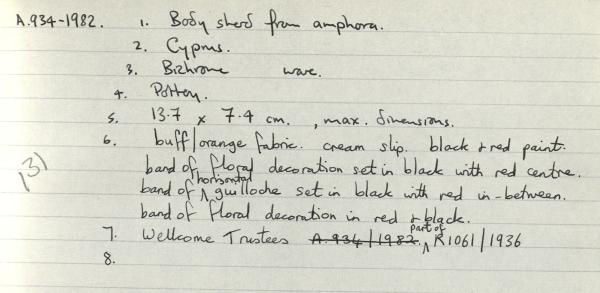 A.934-1982. 1. Body sherd from amphora.
2. Cyprus.
3. Bichrome ware.
4. Pottery.
5. 13.7 x 7.4 cm. , max. dimensions.
6. buff/orange fabric. cream slip. black & red paint.
band of floral decoration set in black with red centre.
band of horizontal guilloche set in black with red in-between.
band of floral decoration in red & black.
7. Wellcome Trustees A.934/1982. part of R1061/1936
8.
(3)